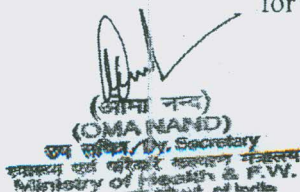 for
(ओमा नन्द)
(OMA NAND)
उप सचिव/Dy. Secretary
Ministry of Health & F.W.